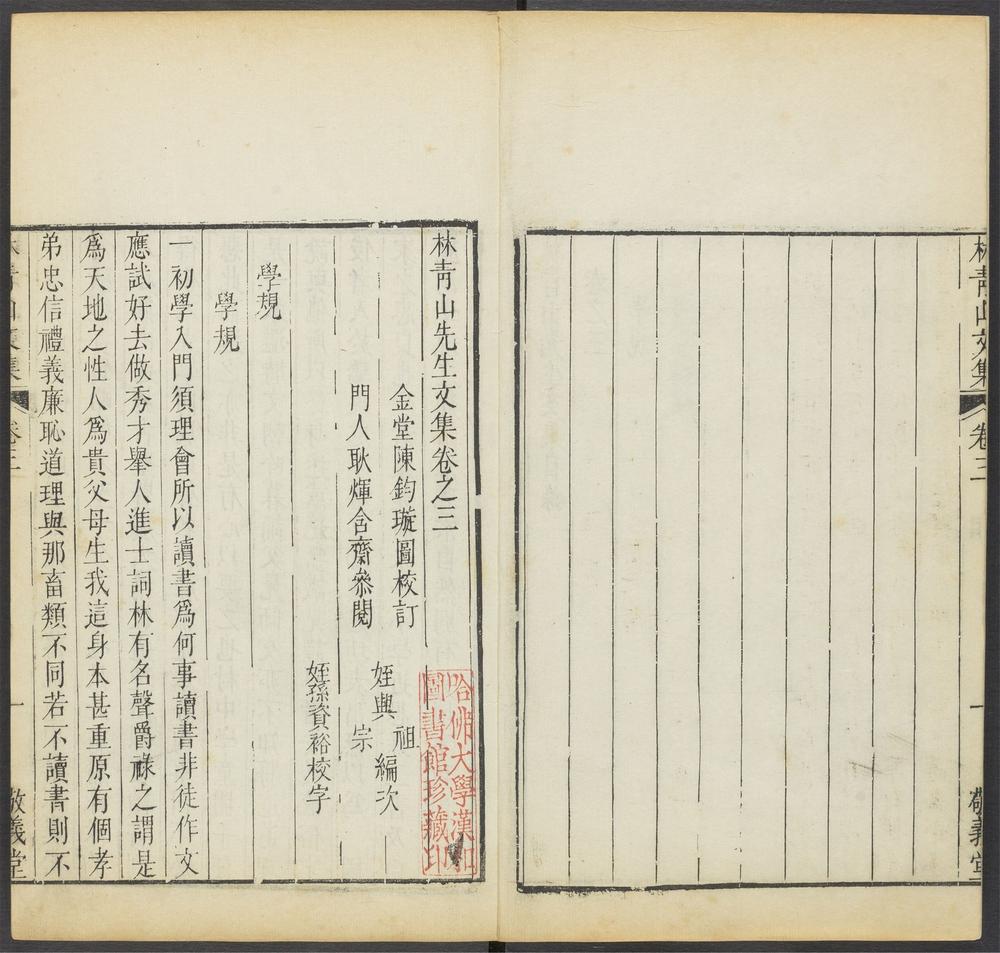 林靑山文集
卷三
一
敬義堂
林靑山先生文集卷之三
金堂陳鈞璇圖校訂
門人耿煇含齋叅閱
姪興祖宗編次
姪孫資裕校字
哈佛大學漢和圖書館珍藏印
學規
學規
一初學入門須理會所以讀書爲何事讀書非徒作文
應試好去做秀才舉人進士詞林有名聲爵祿之謂是
爲天地之性人爲貴父母生我這身本甚重原有個孝
弟忠信禮義廉恥道理與那畜類不同若不讀書則不
林靑山文集
卷三
一
敬義堂